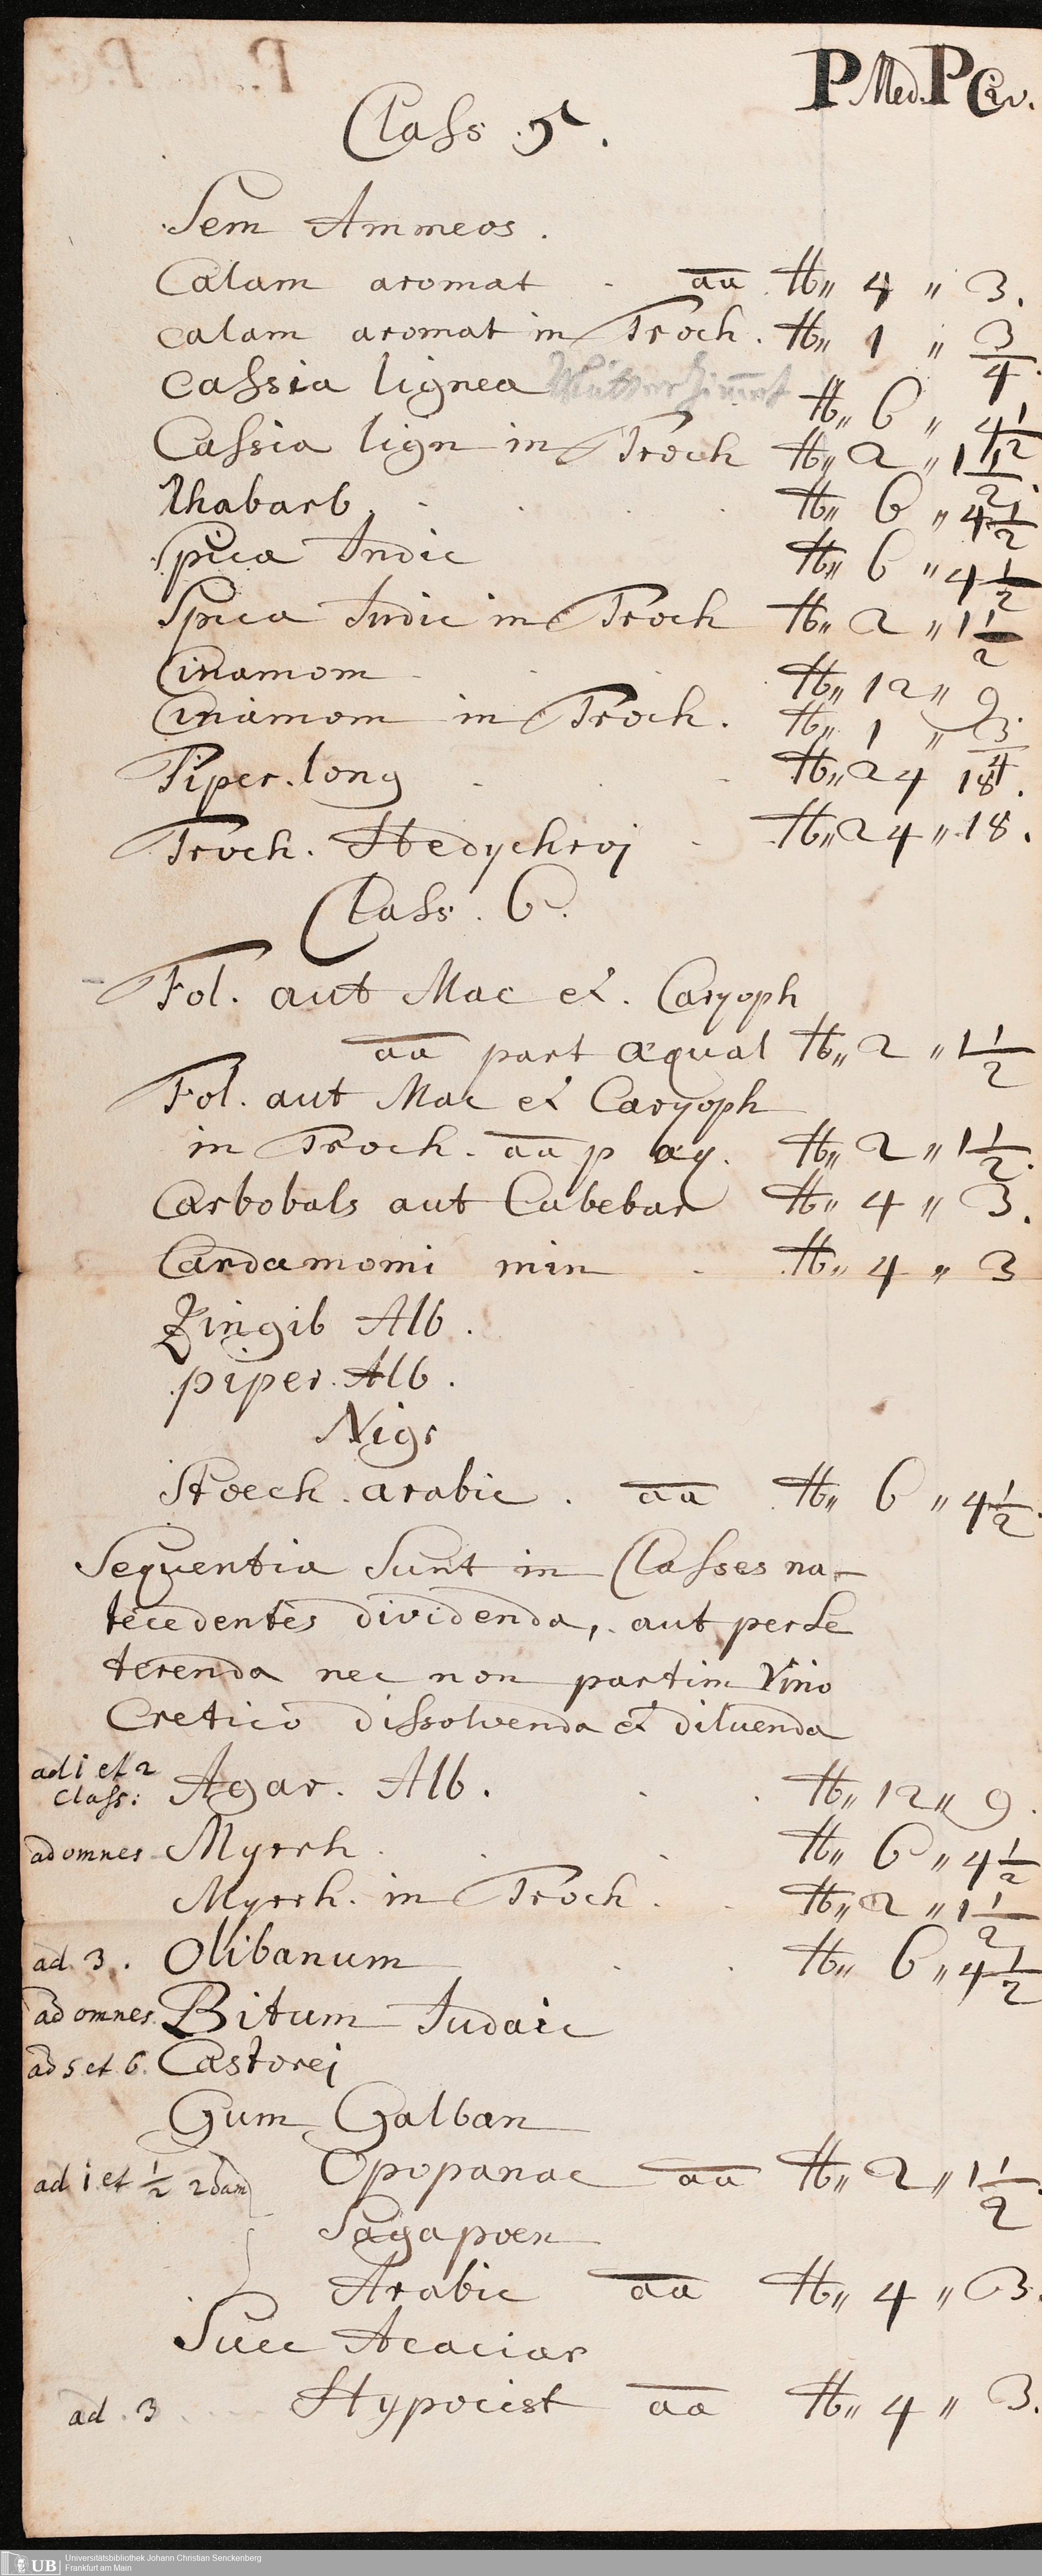 P Med. P Civ.
Class 5.
Sem Ammeos.
Calam aromat - aa ℔„ 4 „ 3.
calam aromat in Troch. ℔„ 1 „ 3/4.
Cassia lignea ℔„ 6 „ 4 1/2
Cassia lign in Troch ℔„ 2 „ 1 1/2.
Rhabarb. ℔„ 6 „ 4 1/2
Spica Indic ℔„ 6 „ 4 1/2
Spica Indic in Troch ℔„ 2 „ 1 1/2
Cinamom ℔„ 12 „ 9.
Cinamom in Troch. ℔„ 1 „ 3/4
Piper. long ℔„ 24 18.
Troch. Hedychroj ℔„ 24 „ 18.
Class. 6.
Fol. aut Mac et. Caryoph
aa part æqual ℔„ 2 „ 1 1/2
Fol. aut Mac et Caryoph
in Troch. aa p æq. ℔„ 2 „ 1 1/2.
Carbobals aut Cubebar ℔„ 4 „ 3.
Cardamomi min - ℔„ 4 „ 3
Zingib Alb.
piper. Alb.
Nigr
Stoech. arabic. aa ℔„ 6 „ 4 1/2.
Sequentia Sunt in Classes na-
tecedentes dividenda, aut perse
terenda nec non partim Vino
Cretico dissolvenda et diluenda
ad 1 et 2
Class: Agar. Alb. ℔„ 12 „ 9.
ad omnes Myrrh. ℔„ 6 „ 4 1/2
Myrrh. in Troch. ℔„ 2 „ 1 1/2
ad. 3. Olibanum ℔„ 6 „ 4 1/2
ad omnes. Bitum Judaic
ad 5 et 6. Castorej
Gum Galban
ad 1 et 1/2 2dam Opopanac aa ℔„ 2 „ 1 1/2.
Sagapoen
Arabic aa ℔„ 4 „ 3.
Succ Acaciar
ad. 3 Hypocist aa ℔„ 4 „ 3.
UB Universitätsbibliothek Johann Christian Senckenberg
Frankfurt am Main